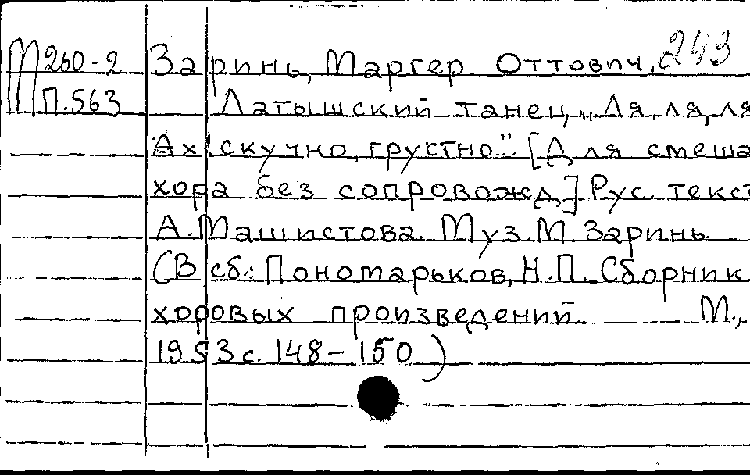 М260-2 Заринь, Маргер Оттович. 243
П.563 Латышский танец „Ля, ля, ля
Ах! скучно, грустно". [Для смеша
хора без сопровожд.] Рус. текст
А. Машистова. Муз. М. Заринь.
(В сб.: Пономарьков, Н.П. Сборник
хоровых произведений. М.,
1953 с. 148-150)